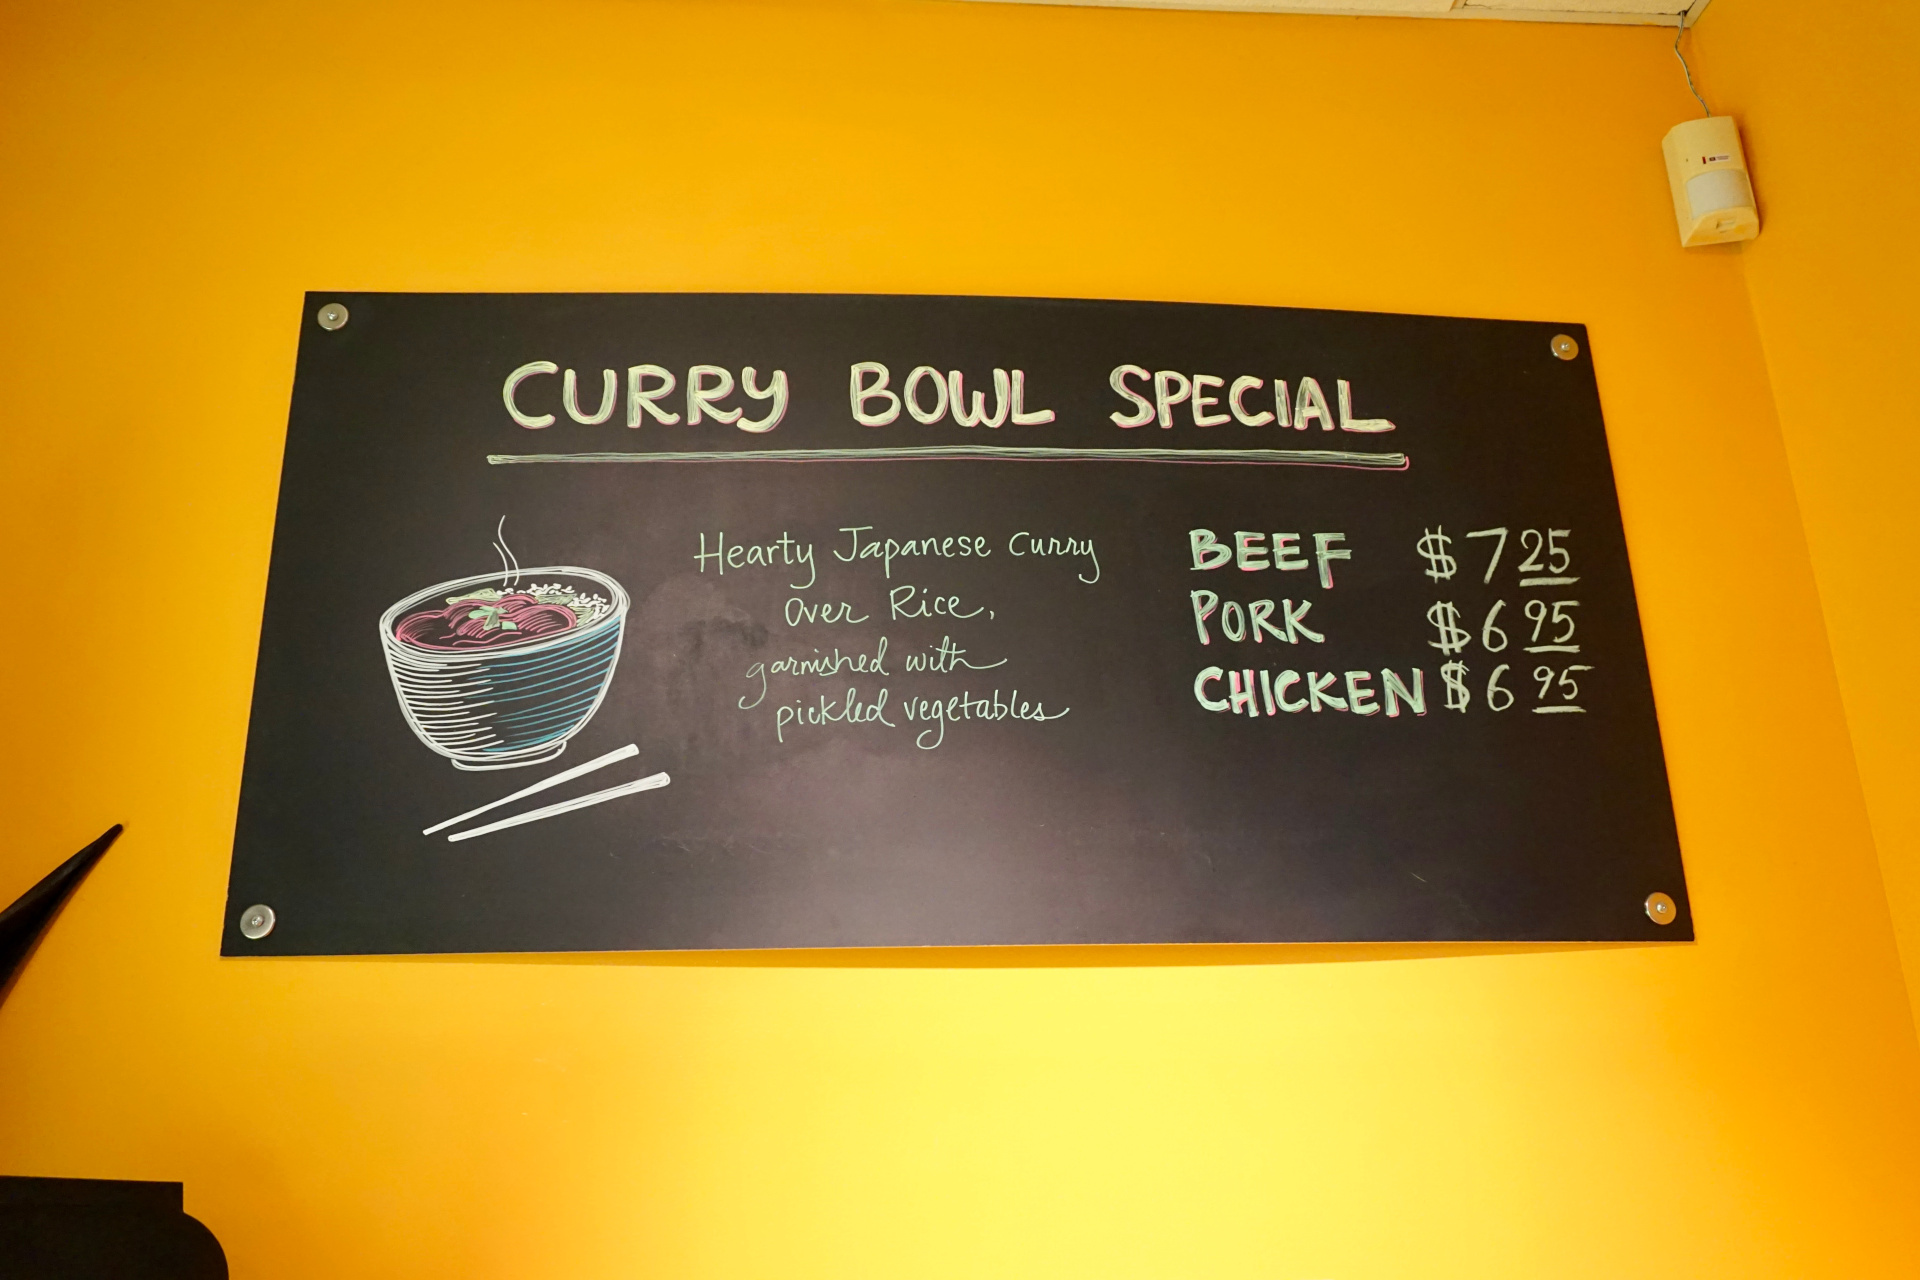 CURRY BOWL SPECIAL
Hearty Japanese Curry
Over Rice,
garnished with
pickled vegetables
BEEF $7 25
PORK $6 95
CHICKEN $6 95